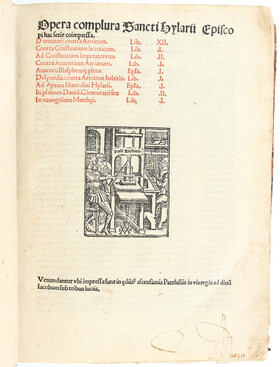 Opera complura Sancti Hylarii Episco
pi hac serie coimpressa.
D trinitate contra Arrianos. Lib. XII.
Contra Constantium hereticum. Lib. I.
Ad Constantium imperatorem Lib. II.
Contra Auxentium Arrianum. Lib. I.
Auxentii Blasphemię plena Epła. I.
De synodis contra Arrianos habitis Lib. I.
Ad Apram filiam diui Hylarii. Epła. I.
In psalmos Dauid. Cōmentarii seu Lib. II.
In euangelium Matthęi. Lib. I.
Venundantur vbi impressa sunt in ędib⁹ Ascensianis Parrhisiis in via regia ad diuū
Iacobum sub tribus luciis.